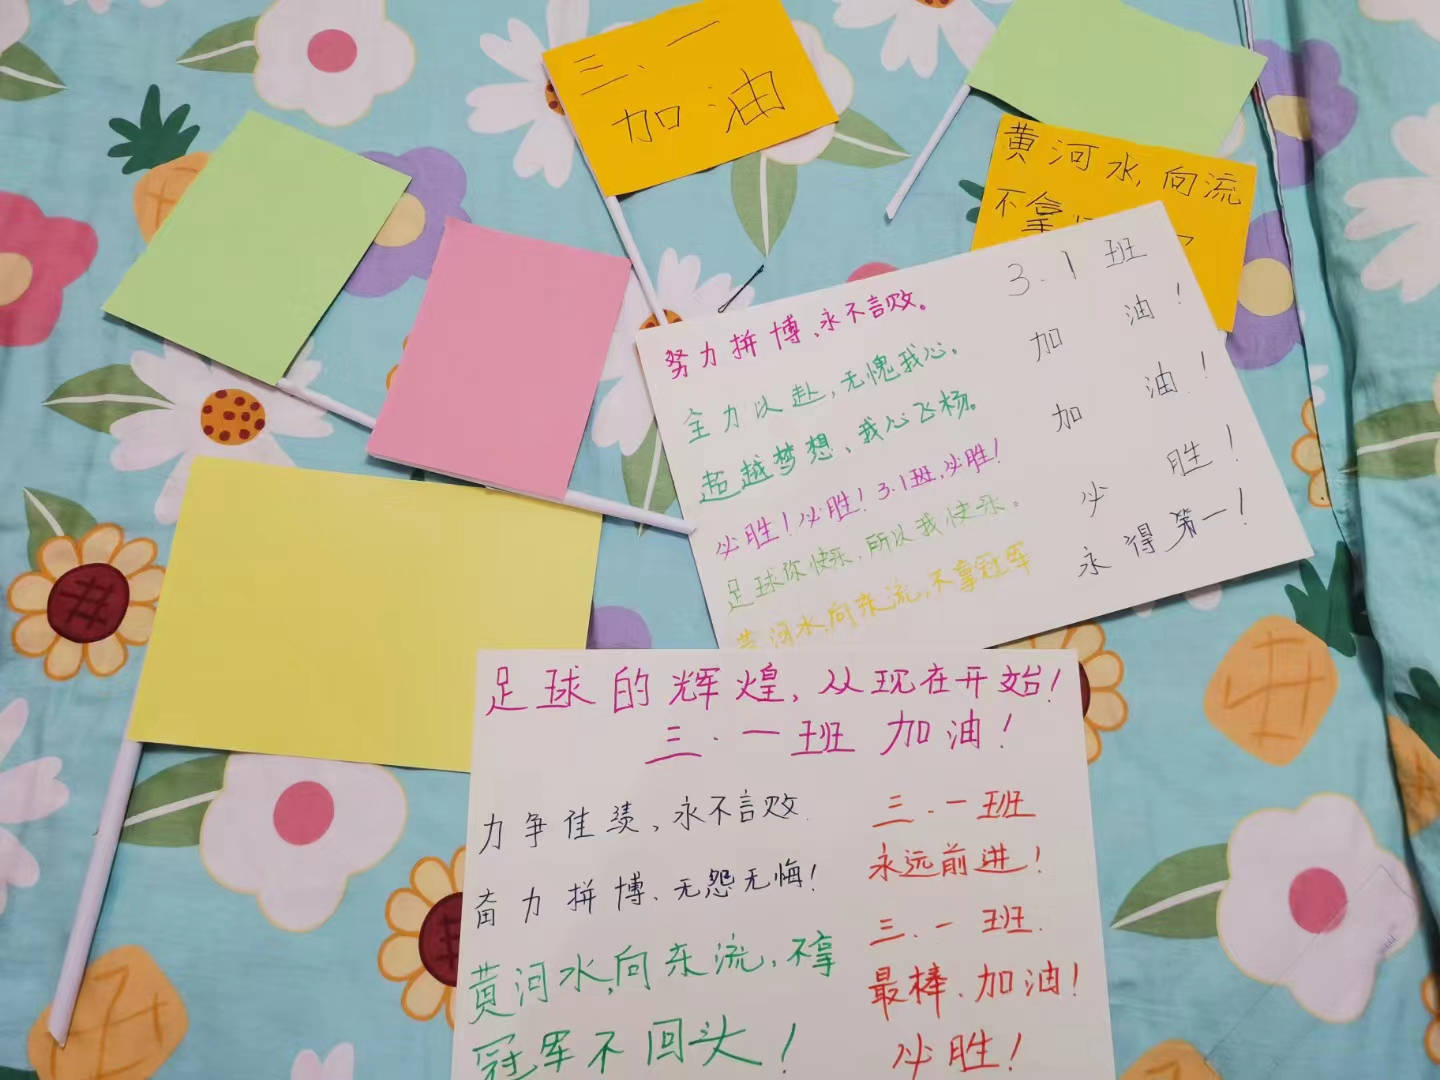 三、一
加油
黄河水,向流
不拿
努力拼博、永不言败。
全力以赴,无愧我心。
超越梦想、我心飞杨。
必胜!必胜!3.1班,必胜!
足球你快乐,所以我快乐。
黄河水,向东流,不拿冠军
3.1班
加油!
加油!
必胜!
永得第一!
足球的辉煌,从现在开始!
三.一班 加油!
力争佳绩、永不言败.
奋力拼博、无怨无悔!
黄河水,向东流,不拿
冠军不回头!
三.一班
永远前进!
三.一班.
最棒、加油!
必胜!